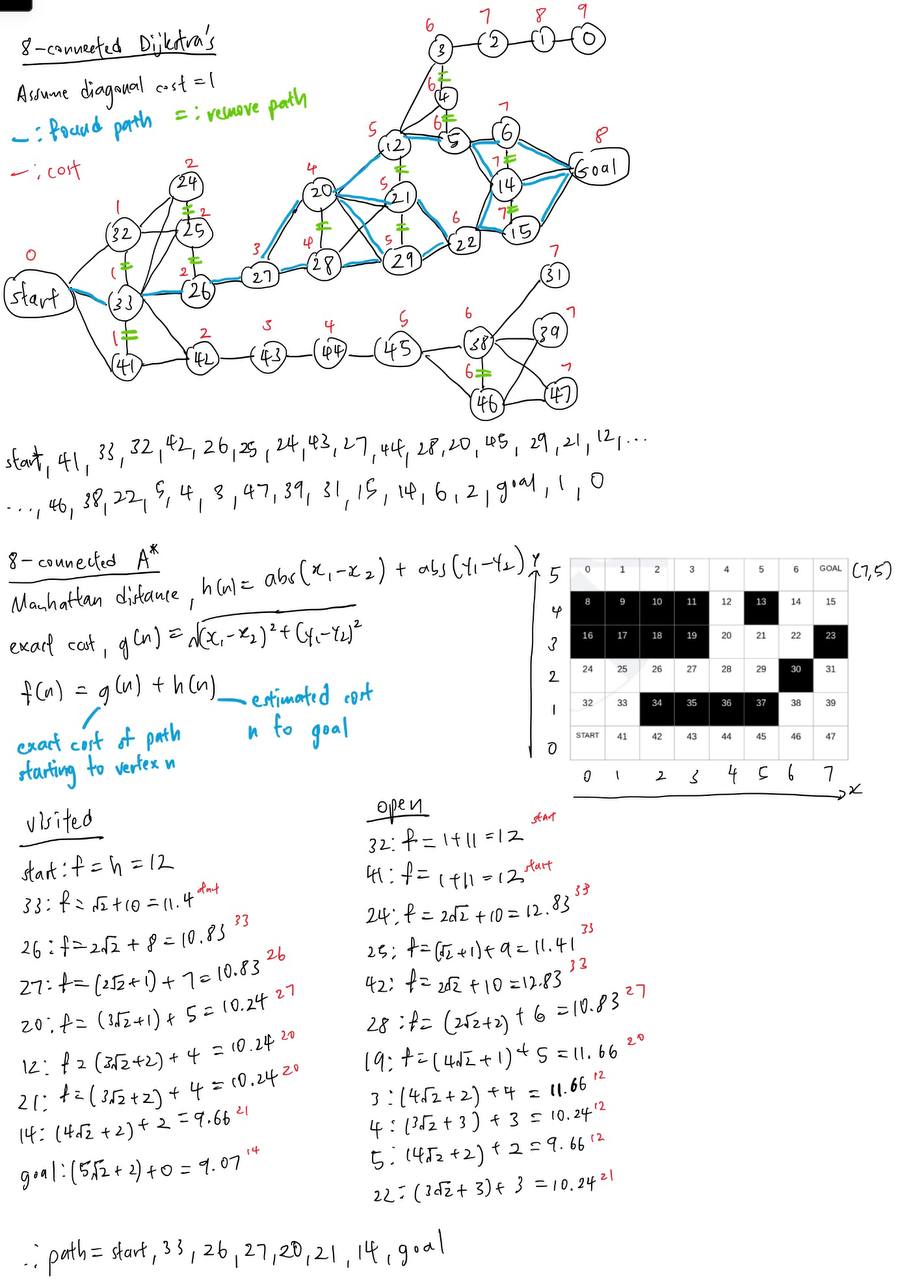 8-connected Dijkstra's
Assume diagonal cost = 1
—: found path =: remove path
—: cost
6 7 8 9
3 2 1 0
6
4
5 6 7
12 5 6
8
Goal
7
14
7
15
4
20
5
21
6
22
3
27
4
28
5
29
2
24
1 2
32 25
0
start
1 2
33 26
1 2 3 4 5
41 42 43 44 45
6
38
6
46
7
31
7
39
7
47
start, 41, 33, 32, 42, 26, 25, 24, 43, 27, 44, 28, 20, 45, 29, 21, 12, ...
..., 46, 38, 22, 5, 4, 3, 47, 39, 31, 15, 14, 6, 2, goal, 1, 0
8-connected A*
Manhattan distance, h(n) = abs(x₁-x₂) + abs(y₁-y₂)
exact cost, g(n) = √(x₁-x₂)²+(y₁-y₂)²
f(n) = g(n) + h(n)
estimated cost
n to goal
exact cost of path
starting to vertex n
Y
5 0 1 2 3 4 5 6 GOAL (7,5)
4 8 9 10 11 12 13 14 15
3 16 17 18 19 20 21 22 23
2 24 25 26 27 28 29 30 31
1 32 33 34 35 36 37 38 39
0 START 41 42 43 44 45 46 47
0 1 2 3 4 5 6 7 x
visited
start: f = h = 12
33: f = √2 + 10 = 11.4 start
26: f = 2√2 + 8 = 10.83 33
27: f = (2√2+1) + 7 = 10.83 26
20: f = (3√2+1) + 5 = 10.24 27
12: f = (3√2+2) + 4 = 10.24 20
21: f = (3√2+2) + 4 = 10.24 20
14: (4√2+2) + 2 = 9.66 21
goal: (5√2+2) + 0 = 9.07 14
open
32: f = 1+11 = 12 start
41: f = 1+11 = 12 start
24: f = 2√2 + 10 = 12.83 33
25: f = (√2+1) + 9 = 11.41 33
42: f = 2√2 + 10 = 12.83 33
28: f = (2√2+2) + 6 = 10.83 27
19: f = (4√2+1) + 5 = 11.66 20
3: (4√2+2) + 4 = 11.66 12
4: (3√2+3) + 3 = 10.24 12
5: (4√2+2) + 2 = 9.66 12
22: (3√2+3) + 3 = 10.24 21
∴ path = start, 33, 26, 27, 20, 21, 14, goal